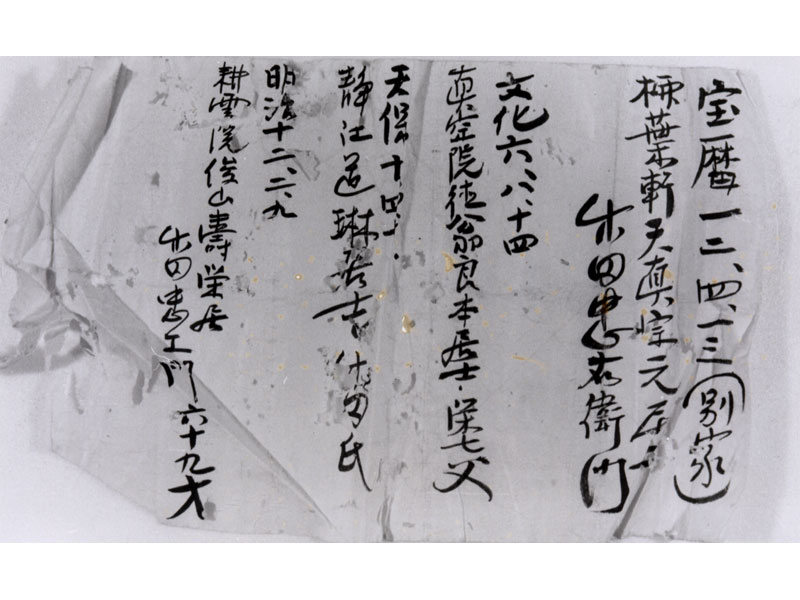 宝暦一二、四、一三(別家)
栭葉軒天真宗元居士
竹田忠右衛門
文化六、八、十四
真空院徒翁良本居士・栄七父
天保十四十・
静江道琳 竹田氏
明治十二、二、九
耕雲院俊山壽栄居
竹田忠エ門 六十九才